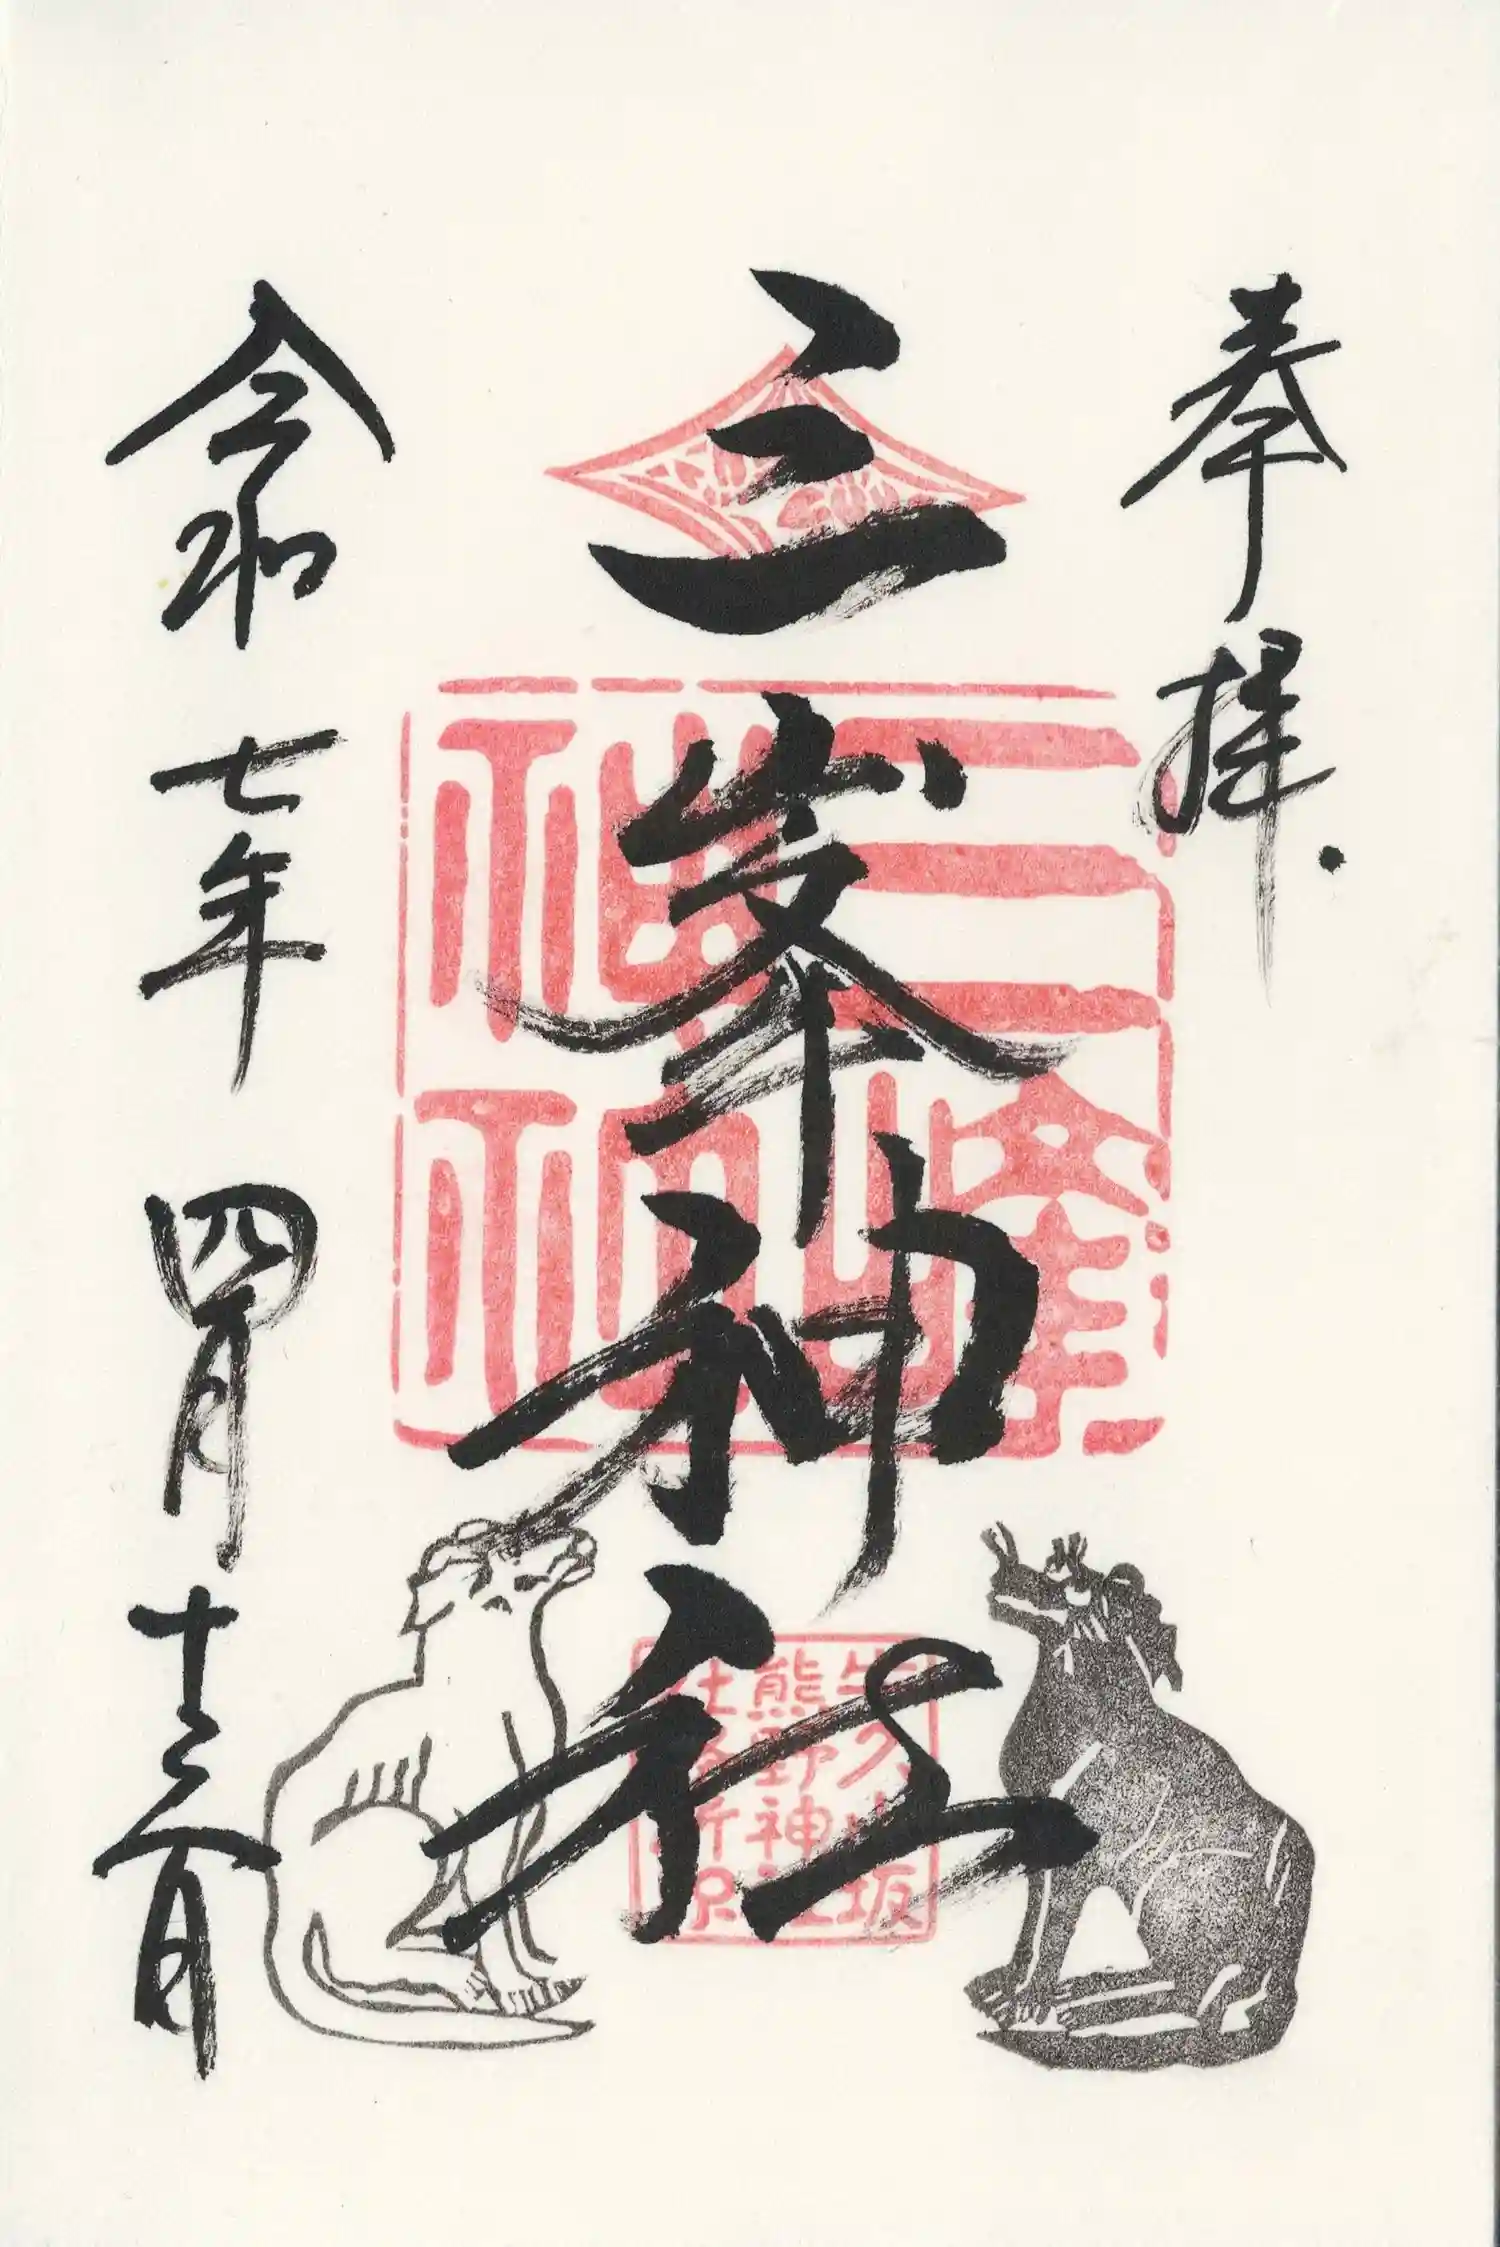 奉拝
三峯神社
令和七年四月十三日
三峰
神
牛久小坂
熊野神社
社務所印